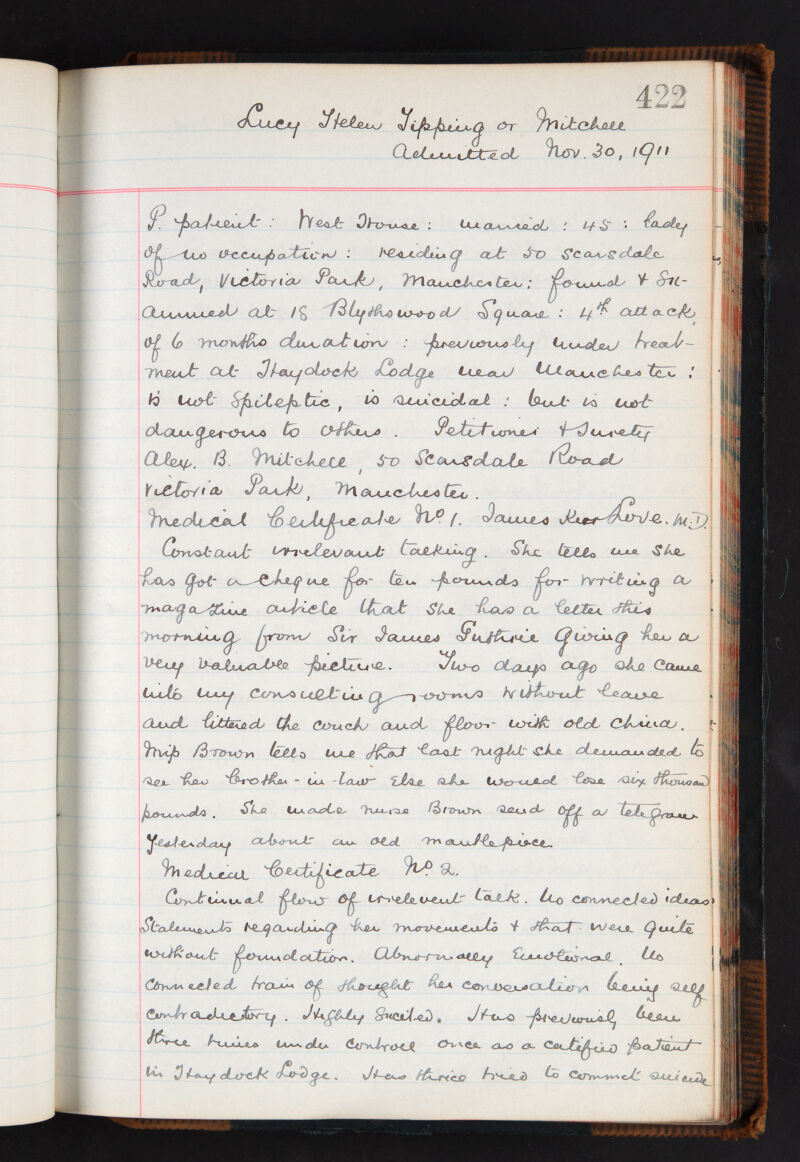 422
Lucy Helen Tipping or Mitchell
Admitted Nov. 30, 1911
P. patient : West House : married : 45 : lady
of no occupation : residing at 50 Scarsdale
Road, Victoria Park, Manchester : found & Ex-
amined at 18 Blythswood Square : 4th attack,
of 6 months duration : previously under treat-
ment at Haydock Lodge near Manchester :
is not Epileptic, is suicidal : but is not
dangerous to others. Petitioner & Surety
Alex. B. Mitchell, 50 Scarsdale Road
Victoria Park, Manchester.
Medical Certificate No 1. James Kerr Love. M.D.
Constant irrelevant talking. She tells me she
has got a cheque for ten pounds for writing a
magazine article that she has a letter this
morning from Sir James Guthrie giving her a
very valuable picture. Two days ago she came
into my consulting rooms without leave
and littered the couch and floor with old china.
Miss Brown tells me that last night she demanded to
see her brother-in-law Else she would lose six thousand
pounds. She made nurse Brown send off a telegram
yesterday about an old mantlepiece
Medical Certificate No 2.
Continual flow of irrelevent talk. No connected ideas
Statements regarding her movements & that were quite
without foundation. Abnormally Emotional. No
connected train of thought her conversation being self
contradictory. Highly Excited. Has previously been
three times under controll once as a certified patient
in Haydock Lodge. Has thrice tried to commit suicide